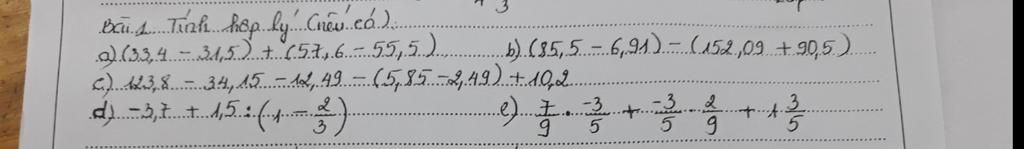 Bài 1 Tính hợp lý (nếu có).
a) (33,4 - 31,5) + (57,6 - 55,5) b) (85,5 - 6,91) - (152,09 + 90,5)
c) 123,8 - 34,15 - 12,49 - (5,85 - 2,49) + 10,2
d) -3,7 + 1,5 : (1 - 2/3) e) 7/9 . -3/5 + -3/5 . 2/9 + 1 3/5